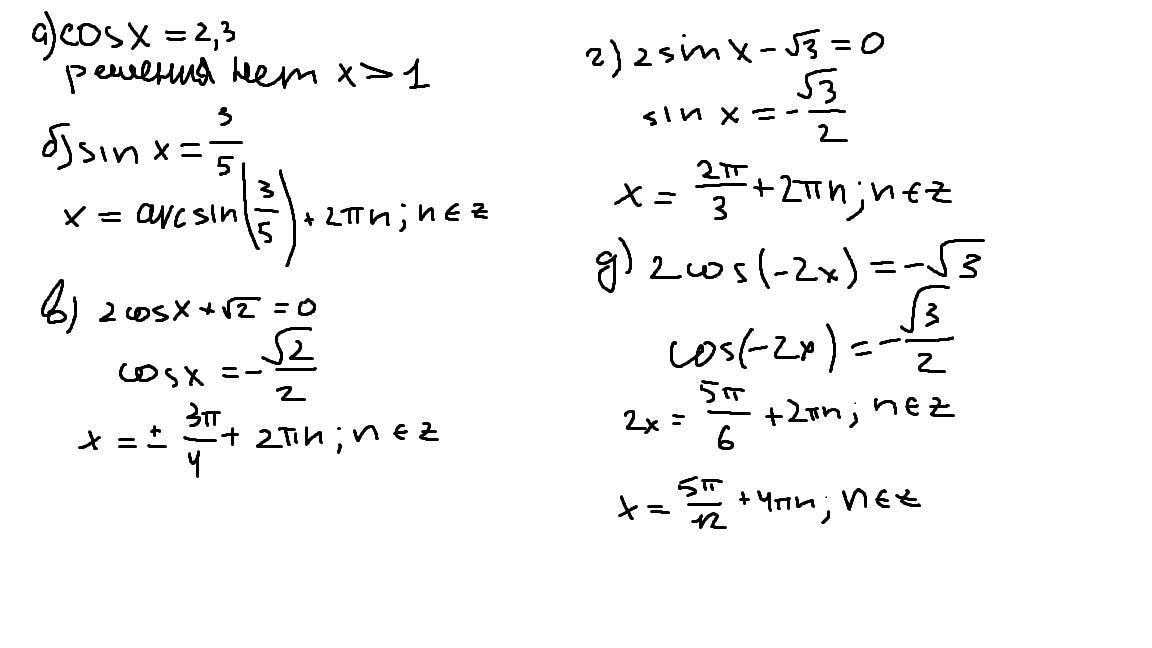 а) cos x = 2,3
решения нет x > 1
б) sin x = 3/5
x = arcsin(3/5) + 2πn; n ∈ z
в) 2 cos x + √2 = 0
cos x = -√2/2
x = ± 3π/4 + 2πn; n ∈ z
г) 2 sin x - √3 = 0
sin x = -√3/2
x = 2π/3 + 2πn; n ∈ z
g) 2 cos(-2x) = -√3
cos(-2x) = -√3/2
2x = 5π/6 + 2πn; n ∈ z
x = 5π/12 + 4πn; n ∈ z